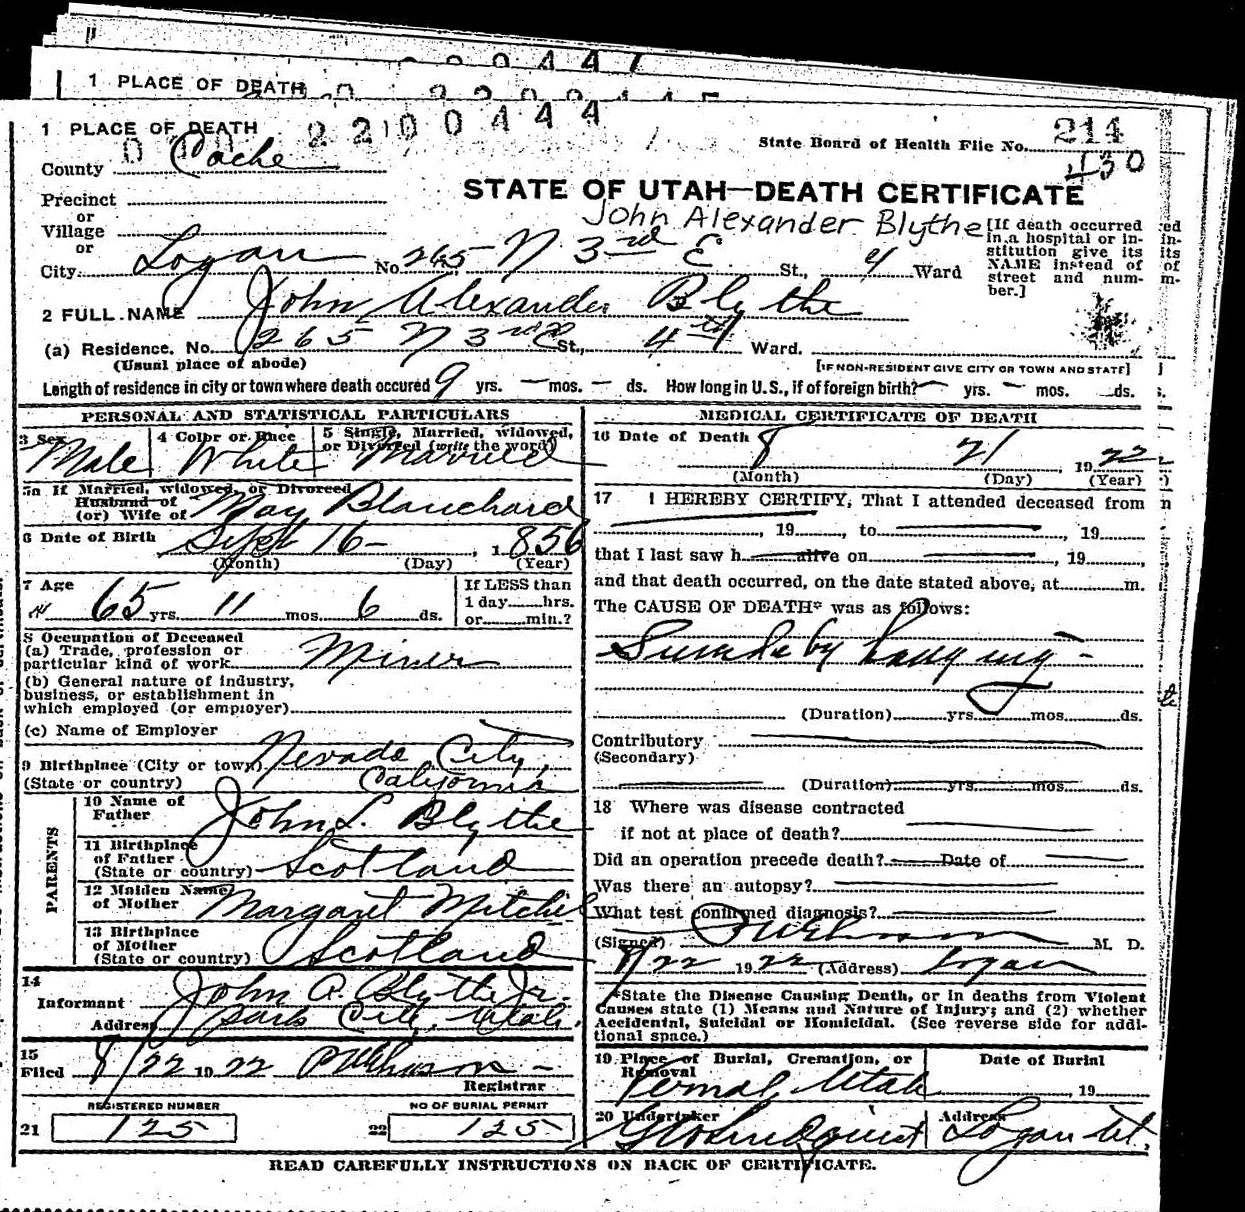 1 PLACE OF DEATH
2200444
1 PLACE OF DEATH
State Board of Health File No. 214
430
County Cache
STATE OF UTAH—DEATH CERTIFICATE
Precinct
or
Village
or
John Alexander Blythe
[If death occurred in a hospital or institution give its NAME instead of street and number.]
City Logan No. 265 N 3rd E. St., 4 Ward
2 FULL NAME John Alexander Blythe
(a) Residence. No. 265 N 3rd E St., 4th Ward.
(Usual place of abode)
[IF NON-RESIDENT GIVE CITY OR TOWN AND STATE]
Length of residence in city or town where death occured 9 yrs. — mos. — ds. How long in U.S., if of foreign birth? — yrs. — mos. ds.
PERSONAL AND STATISTICAL PARTICULARS
3 Sex Male
4 Color or Race White
5 Single, Married, widowed, or Divorced (write the word) Married
5a If Married, widowed, or Divorced
Husband of
(or) Wife of May Blanchard
6 Date of Birth Sept 16 - , 1856
(Month) (Day) (Year)
7 Age 65 yrs. 11 mos 6 ds.
If LESS than
1 day hrs.
or min.?
8 Occupation of Deceased
(a) Trade, profession or
particular kind of work Miner
(b) General nature of industry,
business, or establishment in
which employed (or employer)
(c) Name of Employer
9 Birthplace (City or town) Nevada City,
(State or country) California
PARENTS
10 Name of
Father John L. Blythe
11 Birthplace
of Father
(State or country) Scotland
12 Maiden Name
of Mother Margaret
13 Birthplace
of Mother
(State or country) Scotland
14
Informant John A. Blythe Jr.
Address Park City, Utah.
15
Filed 8/22 1922
Registrar
REGISTERED NUMBER
21 125
NO OF BURIAL PERMIT
22 125
MEDICAL CERTIFICATE OF DEATH
16 Date of Death 8 21, 1922
(Month) (Day) (Year)
17 I HEREBY CERTIFY, That I attended deceased from
, 19 , to , 19 ,
that I last saw h alive on , 19 ,
and that death occurred, on the date stated above, at m.
The CAUSE OF DEATH* was as follows:
Suicide by hanging -
(Duration) yrs mos ds.
Contributory
(Secondary)
(Duration) yrs mos ds.
18 Where was disease contracted
if not at place of death?
Did an operation precede death? Date of
Was there an autopsy?
What test confirmed diagnosis?
(Signed) M. D.
8/22 1922 (Address) Logan
*State the Disease Causing Death, or in deaths from Violent
Causes state (1) Means and Nature of Injury; and (2) whether
Accidental, Suicidal or Homicidal. (See reverse side for additional space.)
19 Place of Burial, Cremation, or
Removal
Vernal, Utah
Date of Burial
, 19
20 Undertaker
Address
Logan Ut.
READ CAREFULLY INSTRUCTIONS ON BACK OF CERTIFICATE.